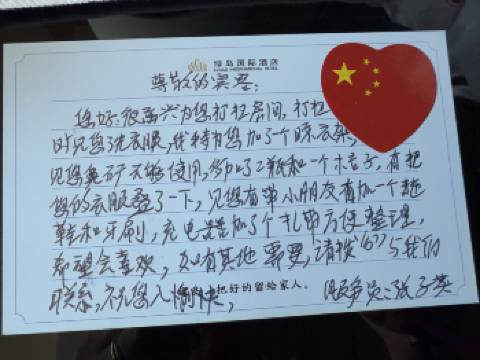 绿岛国际酒店
尊敬的宾客:
您好,很高兴为您打扫房间,打扫
时见您了洗衣服,我特为您加了个晾衣架,
见您矿不够使用,多加了2瓶和一个,有把
您的衣服叠了一下,见您有带小朋友有加一个拖
鞋和牙刷,充电器加了个扎带方便整理,
希望会喜欢,如有其他需要,请拨"67"与我们
联系,祝您入愉快,
把好的留给家人。
服务员:张子英